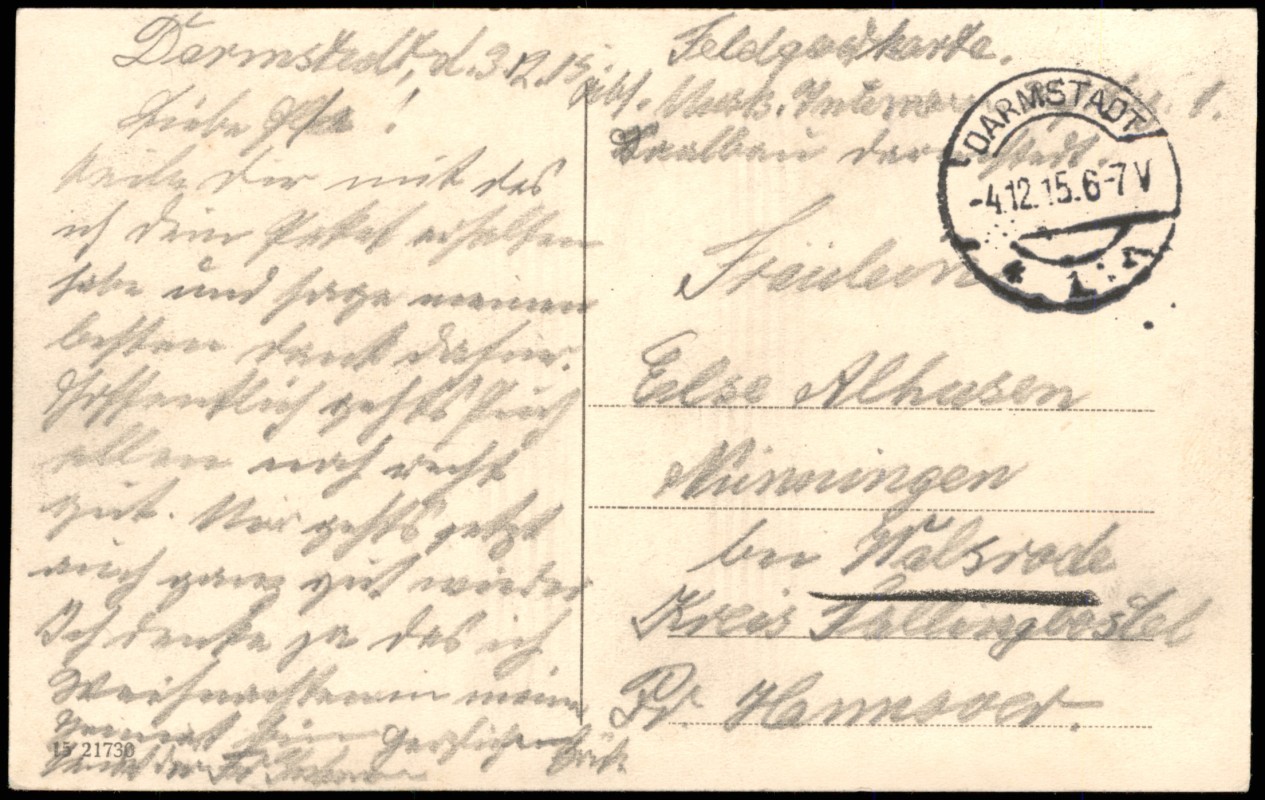 Darmstadt, d. 3.12.15.
Liebe
teile dir mit das
ich dein Paket erhalten
habe und sage meinen
besten dank dafür.
Hoffentlich gehts Euch
allen noch recht
gut. Mir gehts jetzt
auch ganz gut wieder
Ich denke ja das ich
Weihnachten in meine
Heimat bin Herzlichen Grüße
15 21730
Feldpostkarte.
Abs. 1.
Saalbau Darmstadt.
DARMSTADT
-4.12.15.6-7V
* 1. r
Fräulein
Else Alhusen
Nünningen
bei Walsrode
Kreis Fallingbostel
Pr. Hannover.